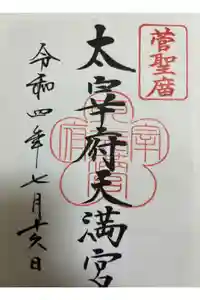 菅聖庿
太宰府天満宮
令和四年七月十六日